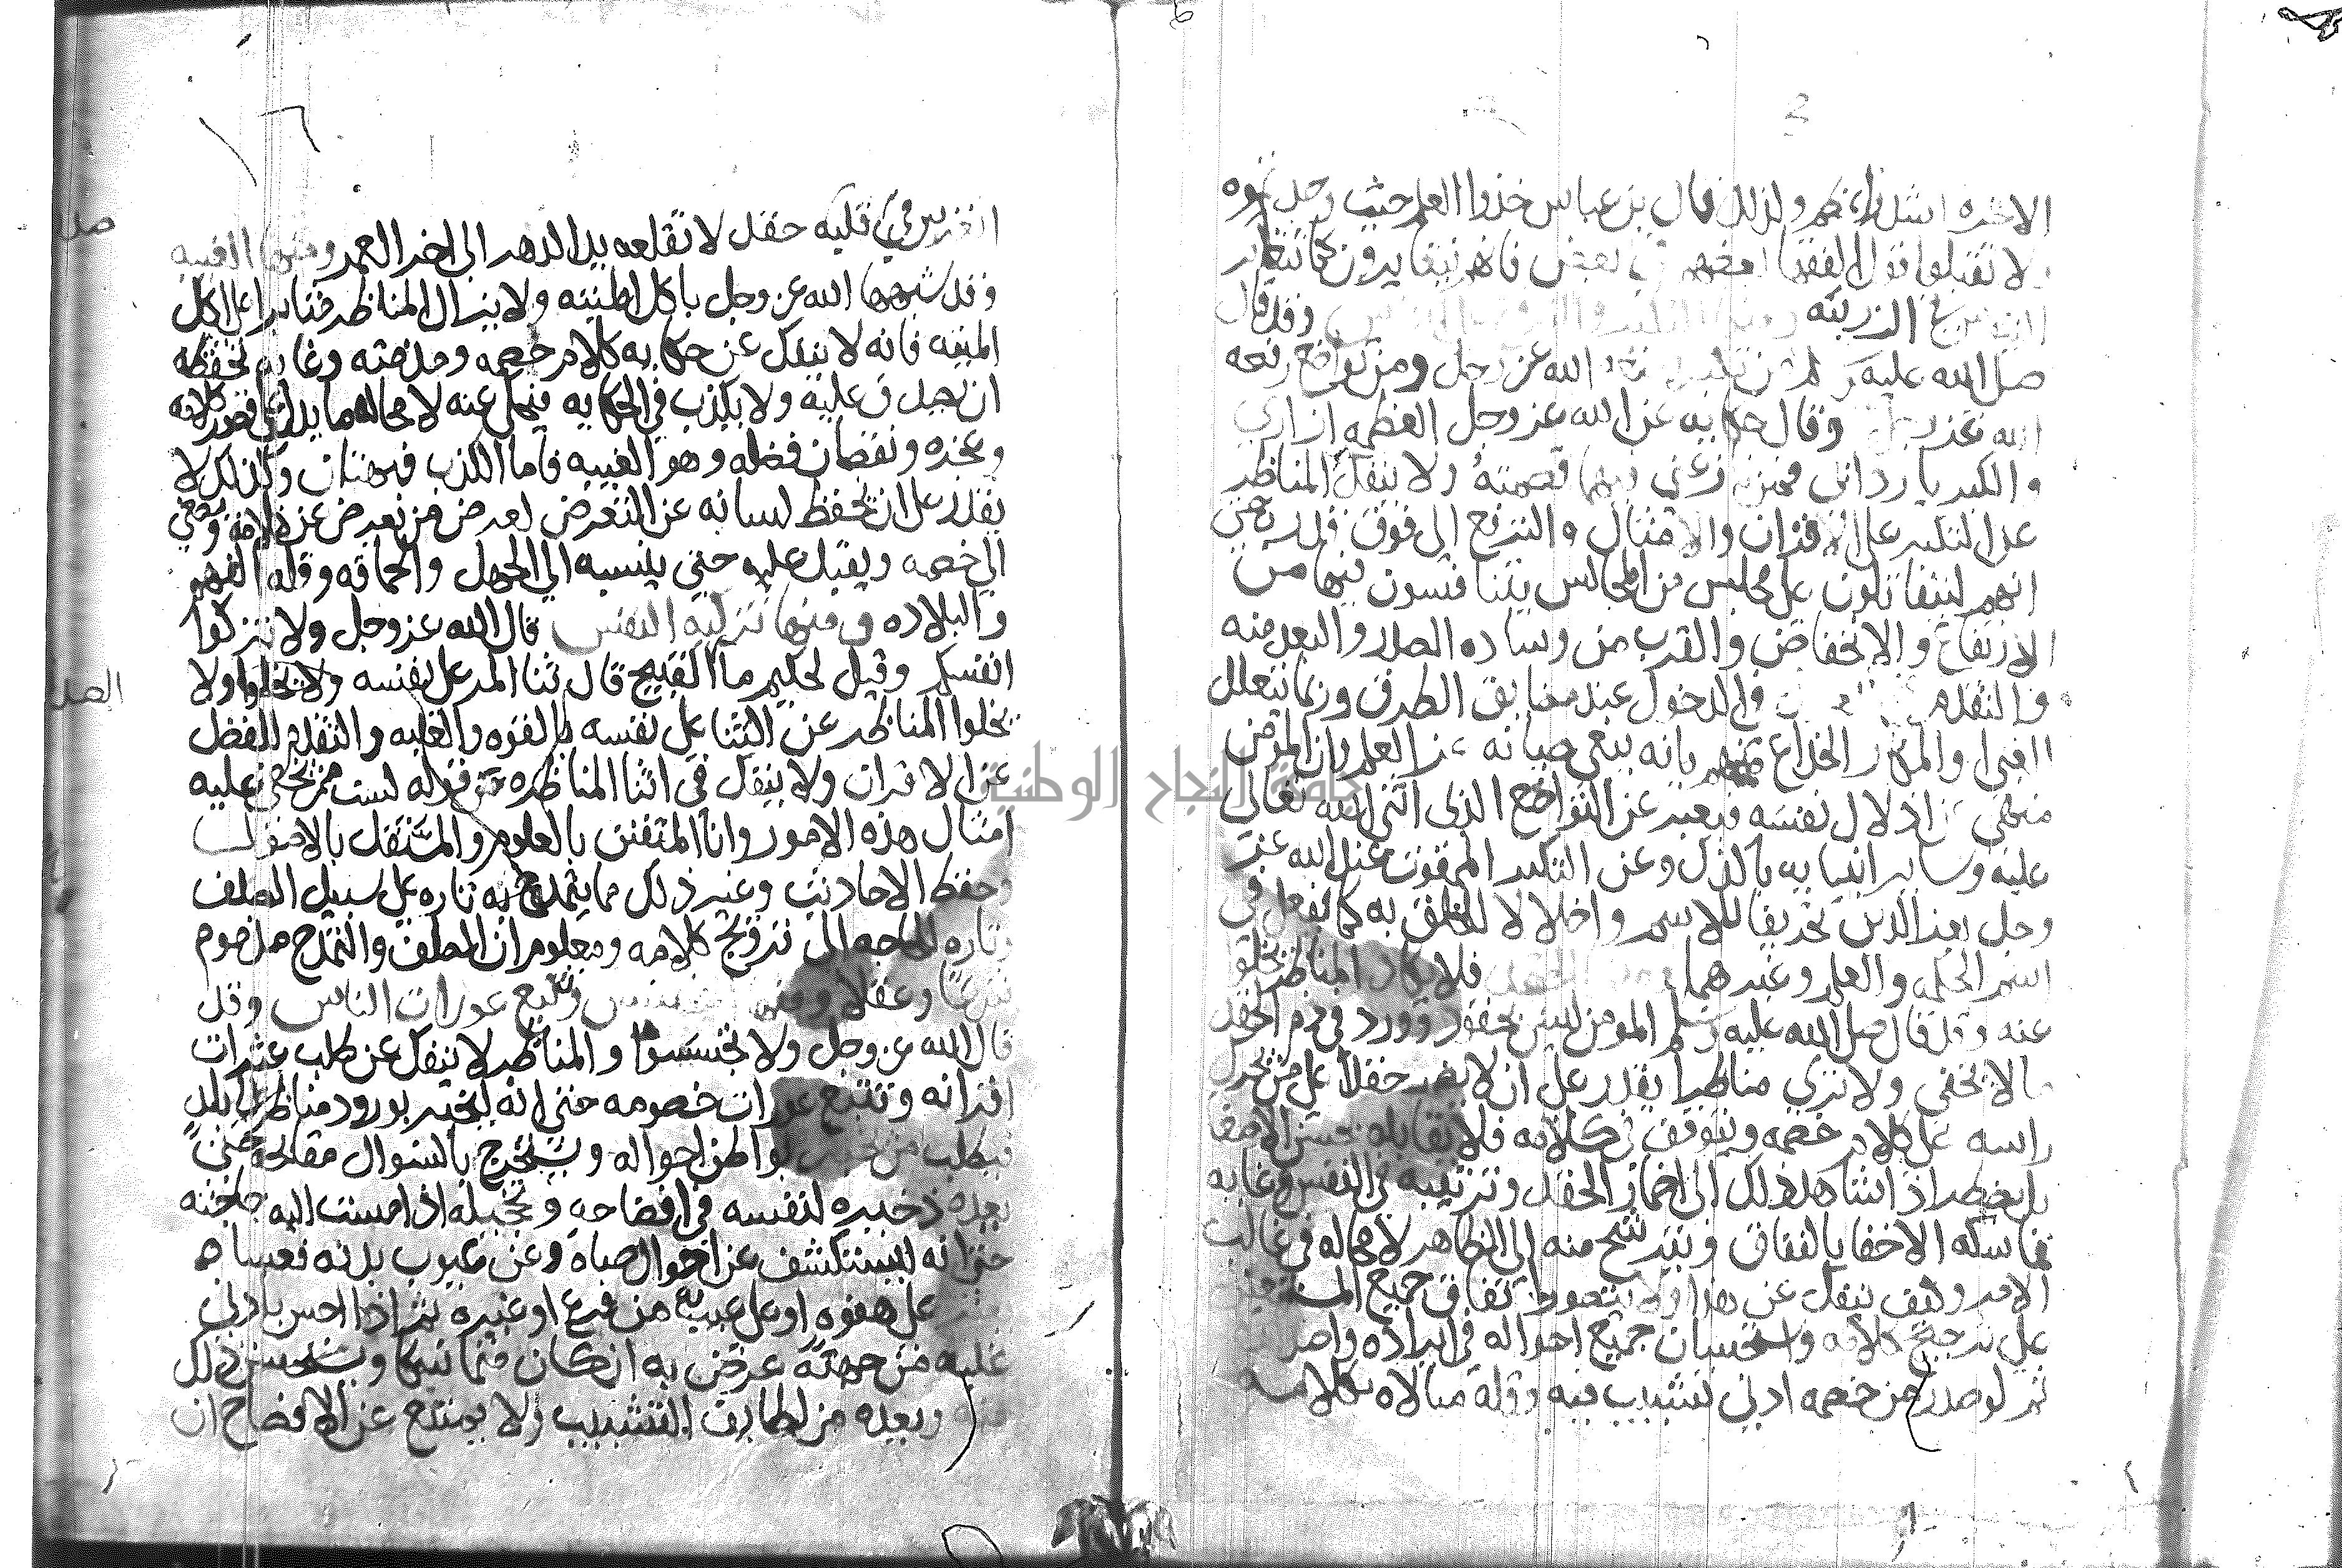 الاخره اشدنظركم ولذلك قال بن عباس خذوا العلم حيث وجدتموه
ولا تقبلوا قول الفقها بعضهم في بعض فانهم يتغايرون كما تتغاير
التيوس في الزريبه ومنها التكبر والترفع على الناس وقد قال
صلى الله عليه وسلم من تكبر وضعه الله عز وجل ومن تواضع رفعه
الله عز وجل وقال حكايه عن الله عز وجل العظمه ازاري
والكبريا رداي فمن نازعني فيهما قصمته ولا ينفك المناظر
عن التكبر على الاقران والامثال والترفع الى فوق قدره حتى
انهم ليتقاتلون على مجلس من المجالس يتنافسون فيها من
الارتفاع والانخفاض والقرب من وساده الصدر والبعد منه
والتقدم في الدخول عند مضايق الطرق وربما يتعلل
الغبي والمكار الخداع منهم بانه يبغي صيانه عز العلم وان المومن
منهي عن اذلال نفسه فيعبر عن التواضع الذي اثنى الله تعالى
عليه وساير انبيايه بالذل وعن التكبر الممقوت عند الله عز
وجل بعز الدين تحريفا للاسم واضلالا للخلق به كما فعل في
اسم الحكمه والعلم وغيرهما ومنها الحقد فلا يكاد المناظر يخلوا
عنه وقد قال صلى الله عليه وسلم المومن ليس بحقود وورد في ذم الحقد
ما لا يخفى ولا ترى مناظرا يقدر على ان لا يضمر حقدا على من يحرك
راسه على كلام خصمه ويتوقف في كلامه فلا يقابله بحسن الاصغا
بل يضطر اذا شاهد ذلك الى اضمار الحقد وتربيته في النفس وغايه
تماسكه الاخفا بالنفاق ويترشح منه الى الظاهر لا محاله في غالب
الامر وكيف ينفك عن هذا ولا يتصور اتفاق جميع المستمعين
على ترجيح كلامه واستحسان جميع احواله في ايراده واصداره
ثم لو صدر من خصمه ادنى تشبيب فيه وقله مبالاه بكلامه
انغرس في قلبه حقد لا تقلعه يد الدهر الى اخر العمر ومنها الغيبه
وقد شبهها الله عز وجل باكل الميته ولا يزال المناظر مثابرا على اكل
الميته فانه لا ينفك عن حكايه كلام خصمه ومذمته وغايه تحفظه
ان يصدق عليه ولا يكذب في الحكايه فيحكي عنه لا محاله ما يدل على قصور كلامه
وعجزه ونقصان فضله وهو الغيبه فاما الكذب فبهتان وكذلك لا
يقدر على ان يحفظ لسانه عن التعرض لعرض من يعرض عن كلامه ويصغي
الى خصمه ويقبل عليه حتى ينسبه الى الجهل والحماقه وقله الفهم
والبلاده ومنها تزكيه النفس قال الله عز وجل ولا تزكوا
انفسكم وقيل لحكيم ما القبيح قال ثنا المرء على نفسه ولا
يخلوا المناظر عن الثنا على نفسه بالقوه والغلبه والتقدم بالفضل
على الاقران ولا ينفك في اثنا المناظره عن قوله لست ممن يخفى عليه
امثال هذه الامور وانا المتفنن بالعلوم والمستقل بالاصول
وحفظ الاحاديث وغير ذلك مما يتمدح به تاره على سبيل الصلف
وتاره للحاجه الى ترويج كلامه ومعلوم ان الصلف والتمدح مذموم
شرعا وعقلا ومنها التجسس وتتبع عورات الناس وقد
قال الله عز وجل ولا تجسسوا والمناظر لا ينفك عن طلب عثرات
اقرانه وتتبع عورات خصومه حتى انه ليخبر بورود مناظر على بلد
فيطلب من يخبر بواطن احواله ويستخرج بالسوال مقابحه حتى
يعده ذخيره لنفسه في افضاحه وتخجيله اذا مست اليه حاجته
حتى انه ليستكشف عن احوال صباه وعن عيوب بدنه فعساه
يعثر على هفوه او على عيب به من قرع او غيره ثم اذا احس بادنى
غلبه من جهته عرض به ان كان متماسكا ويستحسن ذلك
منه ويعده من لطايف التشبيب ولا يمتنع عن الافضاح ان
جامعة النجاح الوطنية